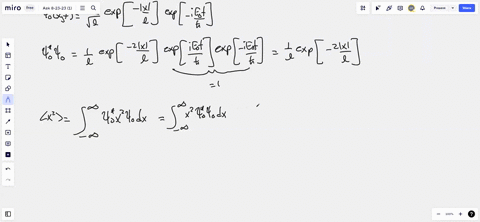 miro
Ask 8-23-23 (1)
Present
Share
Ψ₀(x,t) = 1/√l exp[-|x|/l] exp[-iE₀t/ħ]
Ψ₀*Ψ₀ = 1/l exp[-2|x|/l] exp[iE₀t/ħ] exp[-iE₀t/ħ] = 1/l exp[-2|x|/l]
= 1
⟨x²⟩ = ∫_{-∞}^{∞} Ψ₀* x² Ψ₀ dx = ∫_{-∞}^{∞} x² Ψ₀* Ψ₀ dx